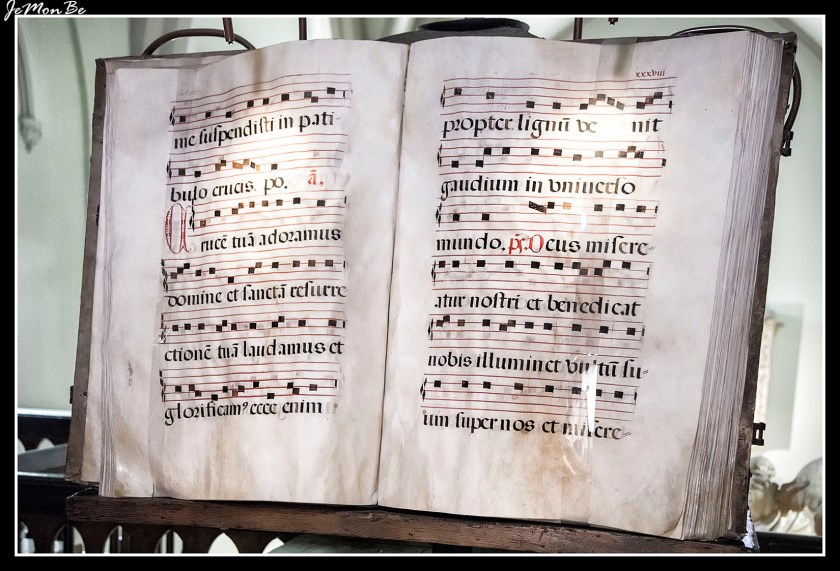 JeMonBe
me suspendisti in pati-
bulo crucis. po. ã.
Crucē tuā adoramus
domine et sanctā resurre
ctionē tuā laudamus et
glorificam⁹ ecce enim
xxxviii
propter lignū ve nit
gaudium in vniverso
mundo. ps. Deus misere-
atur nostri et benedicat
nobis illuminet vultū su-
um super nos et misere-